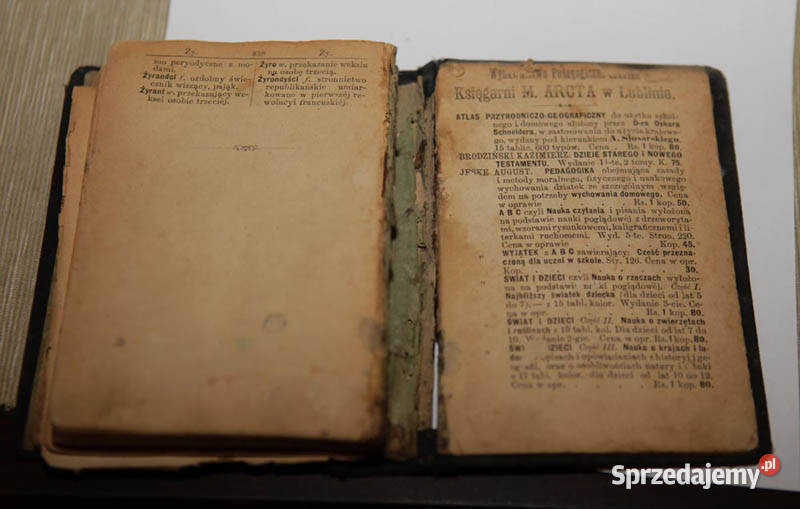 Ży. 338 Ży.
mo peryodyczne z mo-
dami.
Żyrandol f. ozdobny świe-
cznik wiszący, pająk.
Żyrant w. przekazujący we-
ksel osobie trzeciej.
Żyro w. przekazanie wekslu
na osobę trzecią.
Żyrondyści f. stronnictwo
republikańskie umiar-
kowane w pierwszej re-
wolucyi francuskiéj.
Księgarni M. ARCTA w Lublinie.
ATLAS PRZYRODNICZO-GEOGRAFICZNY do użytku szkol-
nego i domowego ułożony przez D-ra Oskara
Schneidera, w zastosowaniu do użycia krajowe-
go, wydany pod kierunkiem A. Slosarskiego.
15 tablic, 600 typów. Cena . Rs. 1 kop. 80.
BRODZIŃSKI KAZIMIERZ. DZIEJE STAREGO i NOWEGO
TESTAMENTU. Wydanie 11-te, 2 tomy. K. 75.
JESKE AUGUST. PEDAGOGIKA obejmująca zasady
i metody moralnego, fizycznego i naukowego
wychowania dziatek ze szczególnym wzglę-
dem na potrzeby wychowania domowego. Cena
w oprawie . . . . Rs. 1 kop. 50.
A B C czyli Nauka czytania i pisania wyłożona
na podstawie nauki poglądowéj z drzeworyta-
mi, wzorami rysunkowemi, kaligraficznemi i li-
terkami ruchomemi. Wyd. 5-te. Stron. 220.
Cena w oprawie . . . . Kop. 45.
WYJĄTEK z A B C zawierający: Część przezna-
czoną dla uczni w szkole. Str. 126. Cena w opr.
Kop. . . . . 30.
ŚWIAT I DZIECI czyli Nauka o rzeczach wyłożo-
na na podstawie poglądowéj. Część I.
Najbliższy światek dziecka (dla dzieci od lat 5
do 7).— z 15 tabl. kolor. Wydanie 3-cie. Ce-
na w opr. . . . . Rs. 1 kop. 80.
ŚWIAT I DZIECI Część II. Nauka o zwierzętach
i roślinach z 15 tabl. kol. Dla dzieci od lat 7 do
10. Wydanie 2-gie. Cena w opr. Rs. 1 kop. 80.
DZIECI Część III. Nauka o krajach i lu-
opisach i opowiadaniach z historyi, je o-
oraz o osobliwościach natury i
z 15 tabl. kolor. dla dzieci od lat 10 do 12.
Cena w opr. . . . . Rs. 1 kop. 80.
Sprzedajemy.pl